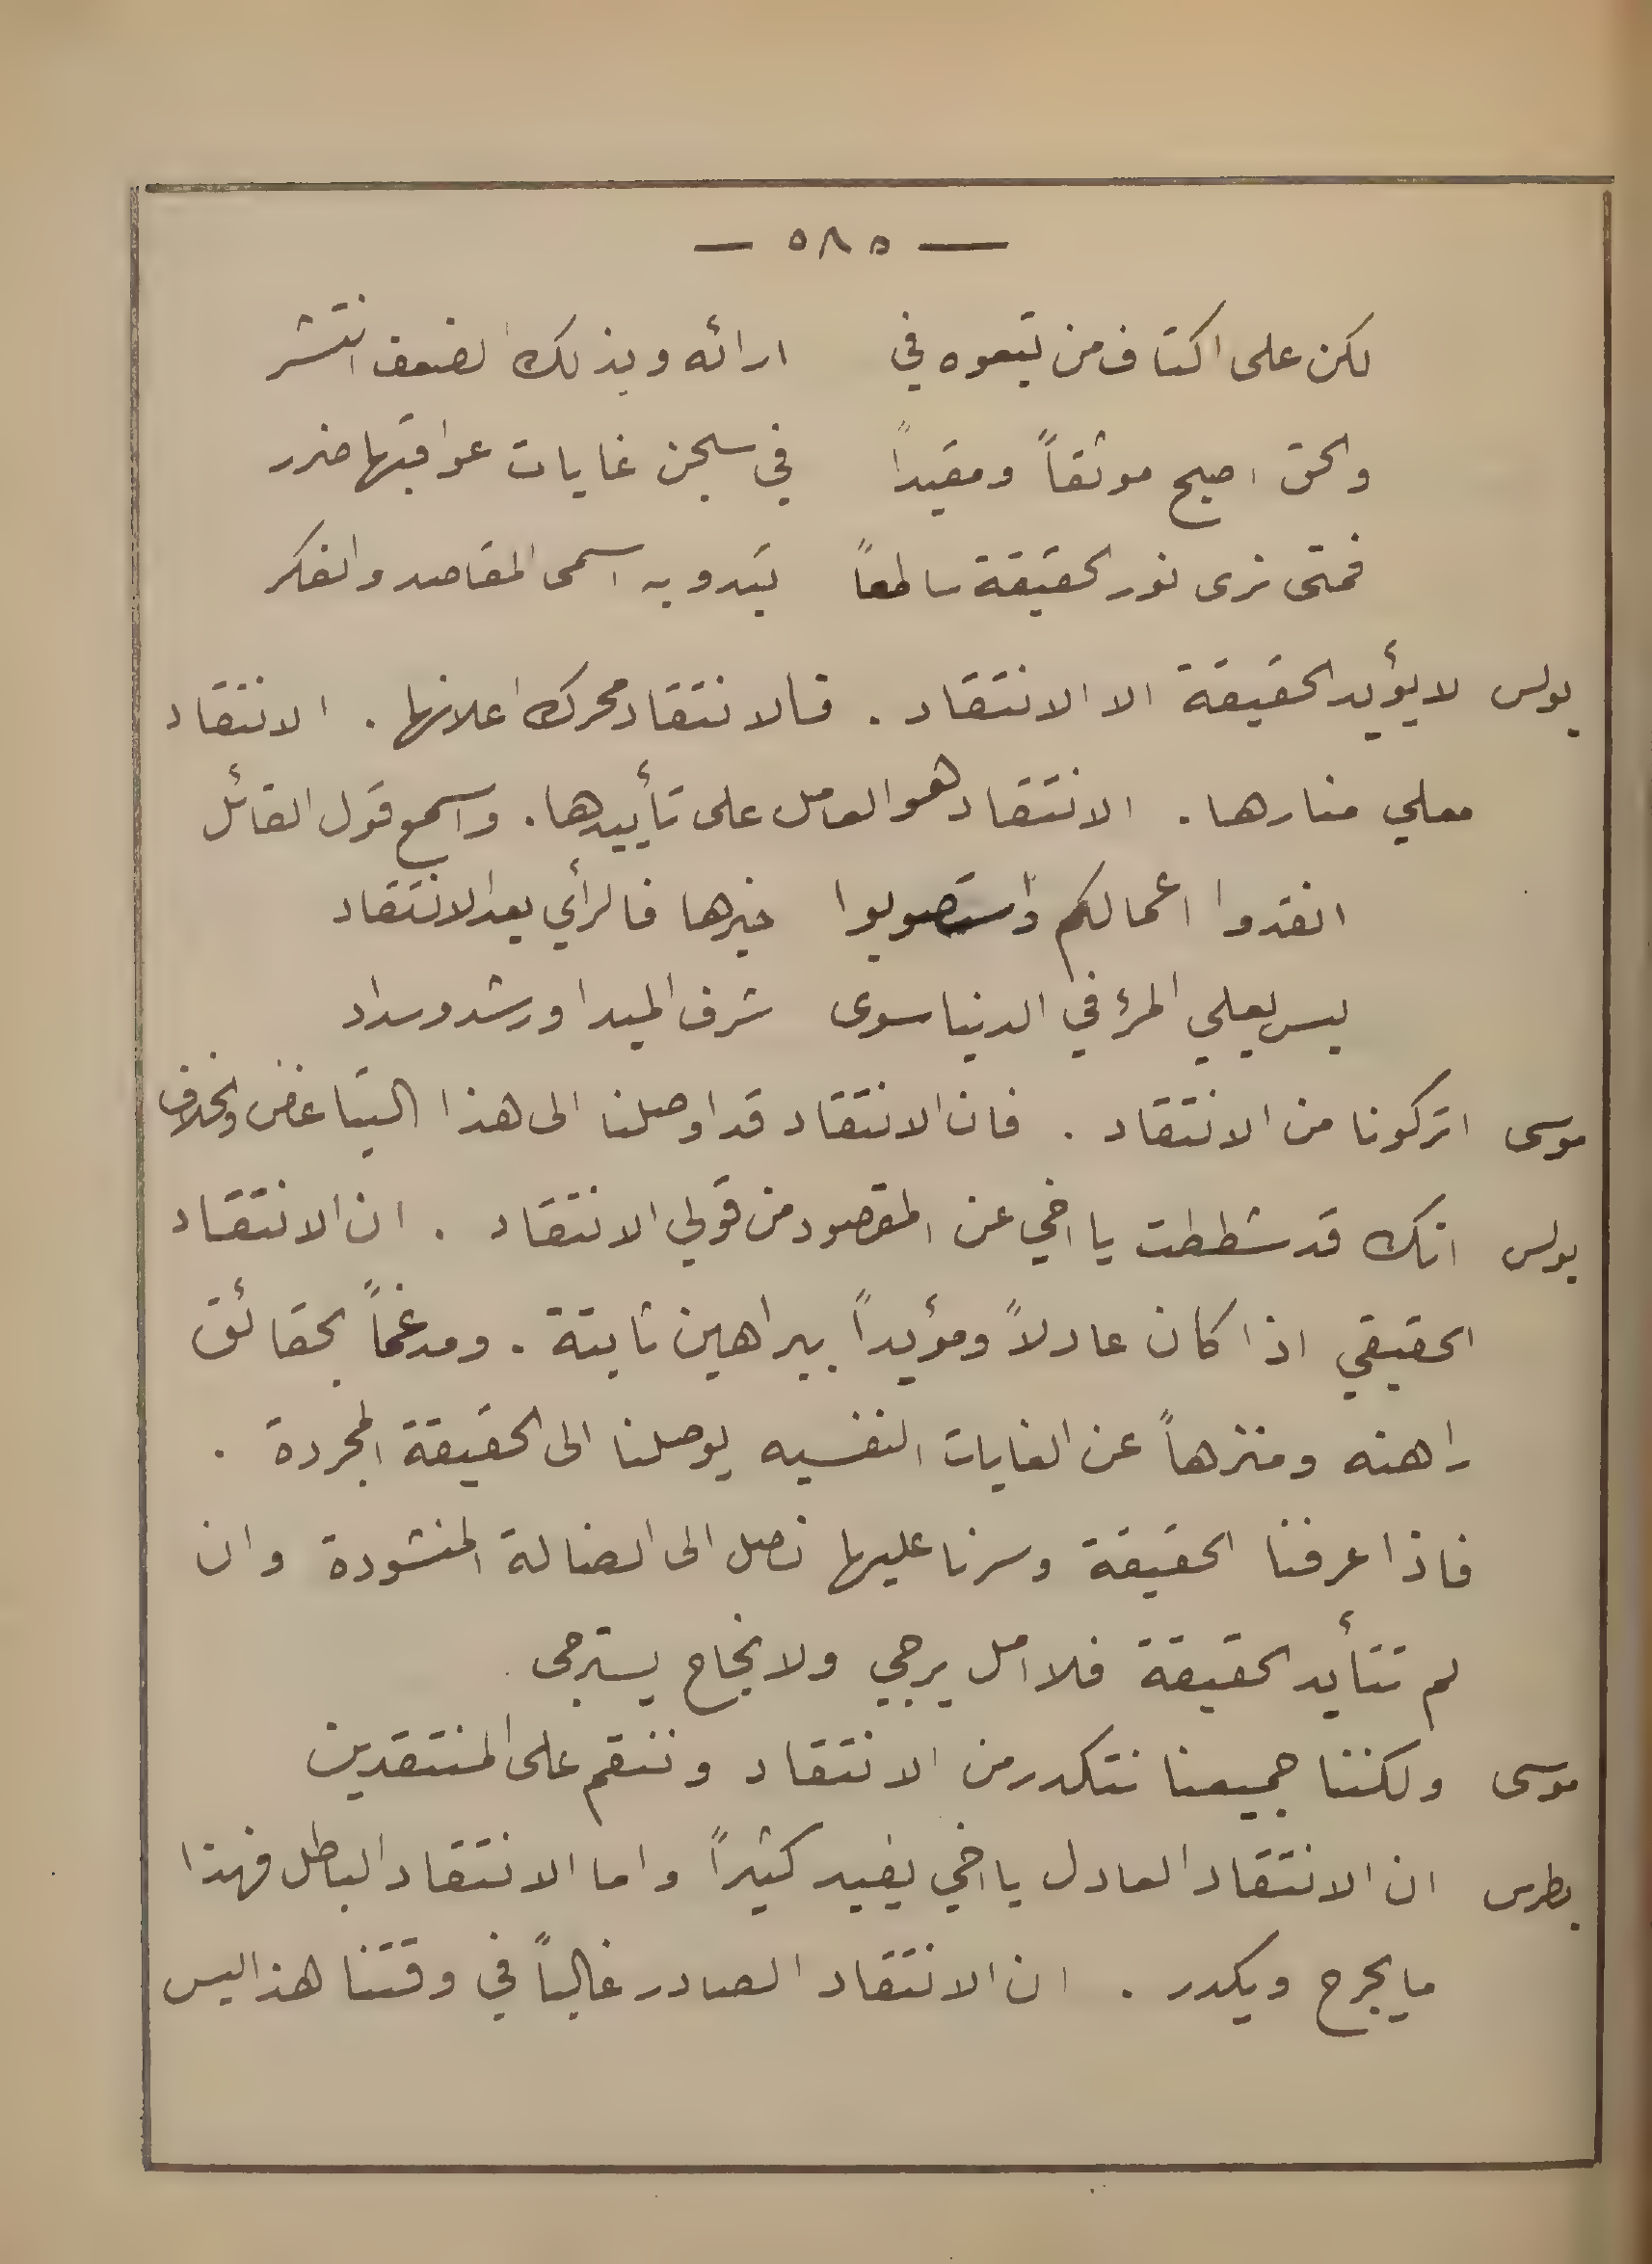 — ٥٨٥ —
لكن على اكتاف من تبعوه في ارائه وبذلك الضعف انتشر
والحق اصبح موثقاً ومقيداً في سجن غايات عواقبها ضرر
فمتى نرى نور الحقيقة ساطعاً يبدو به اسمى المقاصد والفكر
بولس لا يؤيد الحقيقة الا الانتقاد . فالانتقاد محرك اعلانها . الانتقاد
معلي منارها . الانتقاد هو العامل على تأييدها . واسمع قول القائل
انقدوا اعمالكم واستصوبوا خيرها فالرأي بعد الانتقاد
ليس يعلي المرء في الدنيا سوى شرف المبدا ورشد وسداد
موسى اتركونا من الانتقاد . فان الانتقاد قد اوصلنا الى هذا التباغض والخلاف
بولس انك قد شططت يا اخي عن المقصود من قولي الانتقاد . ان الانتقاد
الحقيقي اذا كان عادلاً ومؤيداً ببراهين ثابتة . ومدغماً بحقائق
راهنه ومنزهاً عن الغايات النفسيه يوصلنا الى الحقيقة المجردة .
فاذا عرفنا الحقيقة وسرنا عليها نصل الى الضالة المنشودة وان
لم تتأيد الحقيقة فلا امل يرجي ولا نجاح يسترجى
موسى ولكننا جميعنا نتكدر من الانتقاد وننقم على المنتقدين
بطرس ان الانتقاد العادل يا اخي يفيد كثيراً واما الانتقاد الباطل فهذا
ما يجرح ويكدر . ان الانتقاد الصادر غالباً في وقتنا هذا ليس